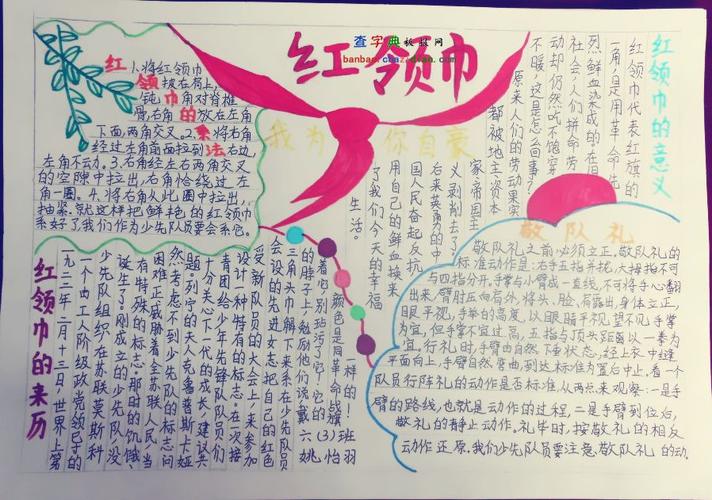 查字典板报网
banbao.chazidian.com
红领巾
我为你自豪
红领巾的系法
1.将红领巾
披在肩上,
钝角对脊椎
骨,右角放在左角
下面,两角交叉。2.将右角
经过左角前面拉到右边,
左角不动。3.右角经左右两角交叉
的空隙中拉出,右角恰绕过左
角一圈。4.将右角从此圈中拉出,
抽紧。就这样把鲜艳的红领巾
系好了我们作为少先队员要会系它。
红领巾的意义
红领巾代表红旗的
一角,是用革命先
烈鲜血染成的在旧
社会,人们拼命劳
动却仍然吃不饱穿
不暖,这是怎么回事?
原来人们的劳动果实
都被地主资本
家帝国主
义剥削去了
后来英勇的中
国人民奋起反抗
用自己的鲜血换来
了我们今天的幸福
生活。
红领巾的来历
一九二二年二月十三日世界上第
一个由工人阶级政党领导的
少先队组织在苏联莫斯科
诞生了刚成立的少先队没
有特殊的标志,那时的饥饿、
困难正威胁着全苏联人民,当
然考虑不到少先队的标志问
题.列宁的夫人克鲁普斯卡娅
十分关心下一代的成长,建议共
青团给少年先锋队队员们
设计一种特有的标志在一次接
受新队员的大会上,来参加
会设的先进女志把自己的红色
三角头巾解下来系在少先队员
的脖子上勉励他们说戴
着它,别玷污了它!它的
颜色是同革命战旗
一样的!
六(3)班
姚怡羽
敬队礼
敬队礼之前必须立正。敬队礼的
标准动作是:右手五指并拢,大拇指不可
与四指分开,手掌与小臂成一直线,不可将手心翻
出来,臂肘应向右外,将头、脸、有露出,身体立正,
眼平视,手举的高度,以眼睛平视望不见手掌
为宜,但手掌不宜过高,五指与顶头距离以一拳为
宜,行礼时,手臂由自然下垂状态,经上衣中缝
平面向上,手臂自然弯曲,到达标准位置后中止,看一个
队员行阵礼的动作是否标准,从两点来观察:一是手
臂的路线,也就是动作的过程,二是手臂到位后,
敬礼的静止动作。礼毕时,按敬礼的相反
动作还原。我们少先队员要注意敬队礼的动